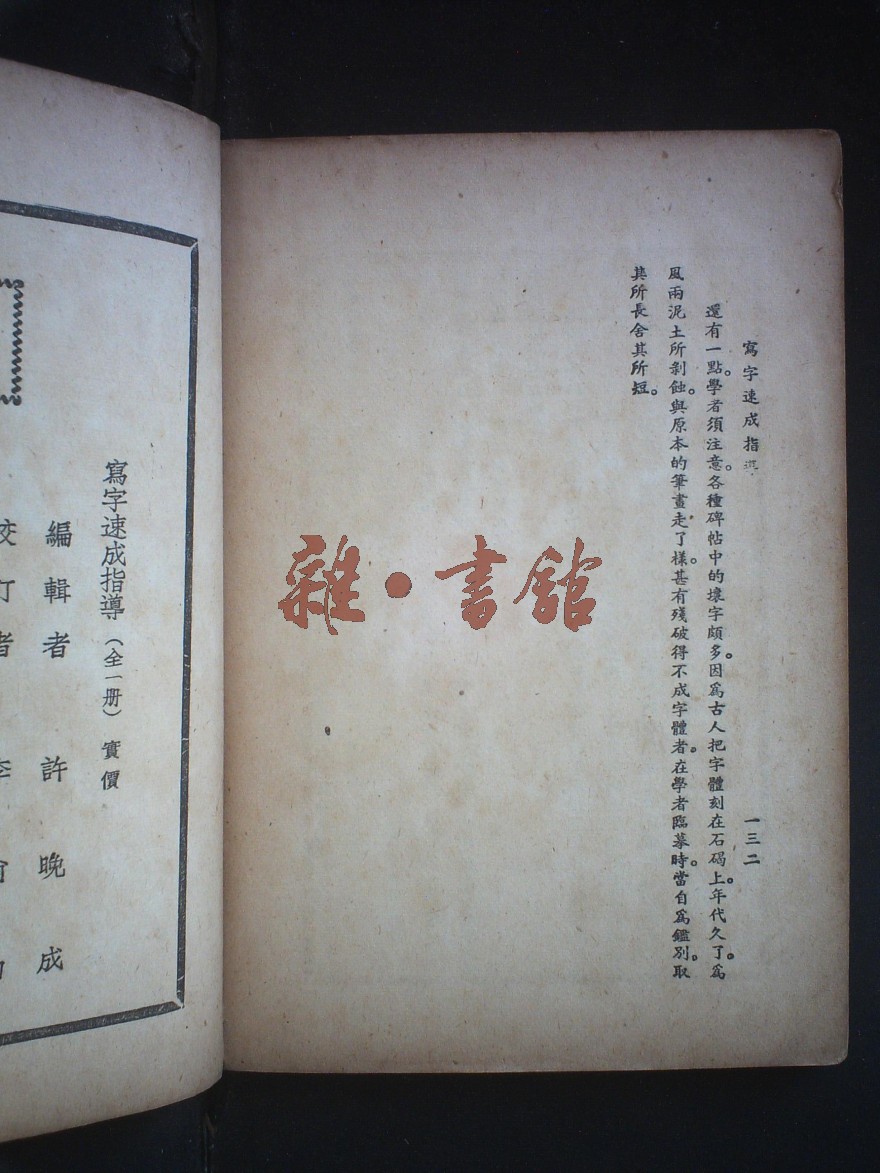 寫字速成指導
一三二
還有一點。學者須注意。各種碑帖中的壞字頗多。因爲古人把字體刻在石碣上。年代久了。爲
風雨泥土所剝蝕。與原本的筆畫走了樣。甚有殘破得不成字體者。在學者臨摹時。當自爲鑑別。取
其所長舍其所短。
雜·書館
寫字速成指導（全一册）實價
編輯者 許晚成
校訂者 李